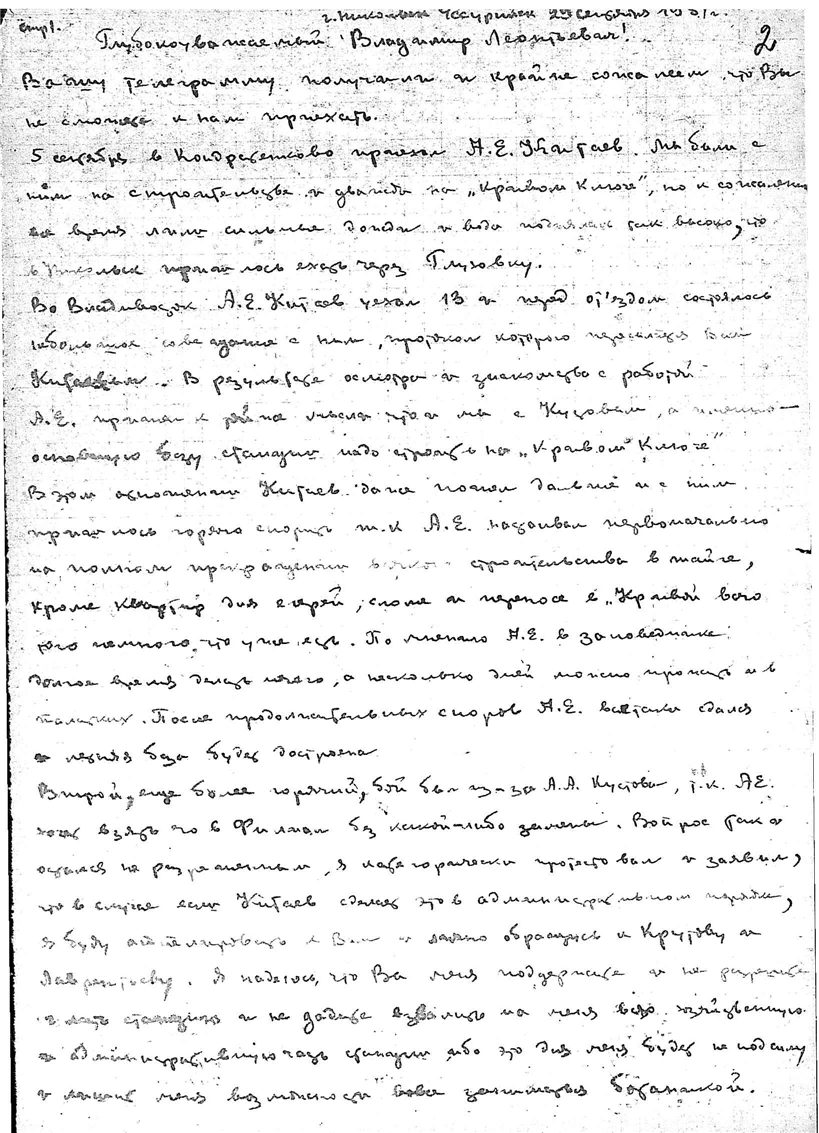 стр1.
г. Никольск Уссурийск 29 сентября 193 г.
2
Глубокоуважаемый Владимир Леонтьевич!
Вашу телеграмму получили и крайне сожалеем, что Вы
не сможете к нам приехать.
5 сентября в Кондратенково приехал А.Е. Китаев. Мы были с
ним на строительстве и дважды на „Кривом Ключе", но к сожалению
время лили сильные дожди и вода поднялась так высоко, что
в Никольск пришлось ехать через Глуховку.
Во Владивосток А.Е. Китаев уехал 13 и перед от'ездом состоялось
небольшое совещание с ним, протокол которого пересылается Вам
Китаевым. В результате осмотра и знакомства с работой
А.Е. пришел к той же мысли что и мы с Кустовым, а именно —
основную базу станции надо строить на „Кривом Ключе"
В этом отношении Китаев даже пошел дальше и с ним
пришлось горячо спорить т.к А.Е. настаивал первоначально
на полном прекращении всякого строительства в тайге,
кроме квартир для егерей, сломе и переносе в „Кривой всего
того немного, что уже есть. По мнению А.Е. в заповеднике
долгое время делать нечего, а несколько дней можно прожить и в
палатках. После продолжительных споров А.Е. всетаки сдался
и летняя база будет достроена
Второй, еще более горячий, бой был из-за А.А. Кустова, т.к. А.Е.
хочет взять его в Филиал без какой-либо замены. Вопрос так и
остался не разрешенным, я категорически протестовал и заявил,
что в случае если Китаев сделает это в административном порядке,
я буду апеллировать к Вам и лично обращусь к Крутову и
Лаврентьеву. Я надеюсь, что Вы меня поддержите и не разрешите
станцию и не дадите взвалить на меня всю хозяйственную
и административную часть станции ибо это для меня будет не под силу
и лишит меня возможности вовсе заниматься ботаникой.